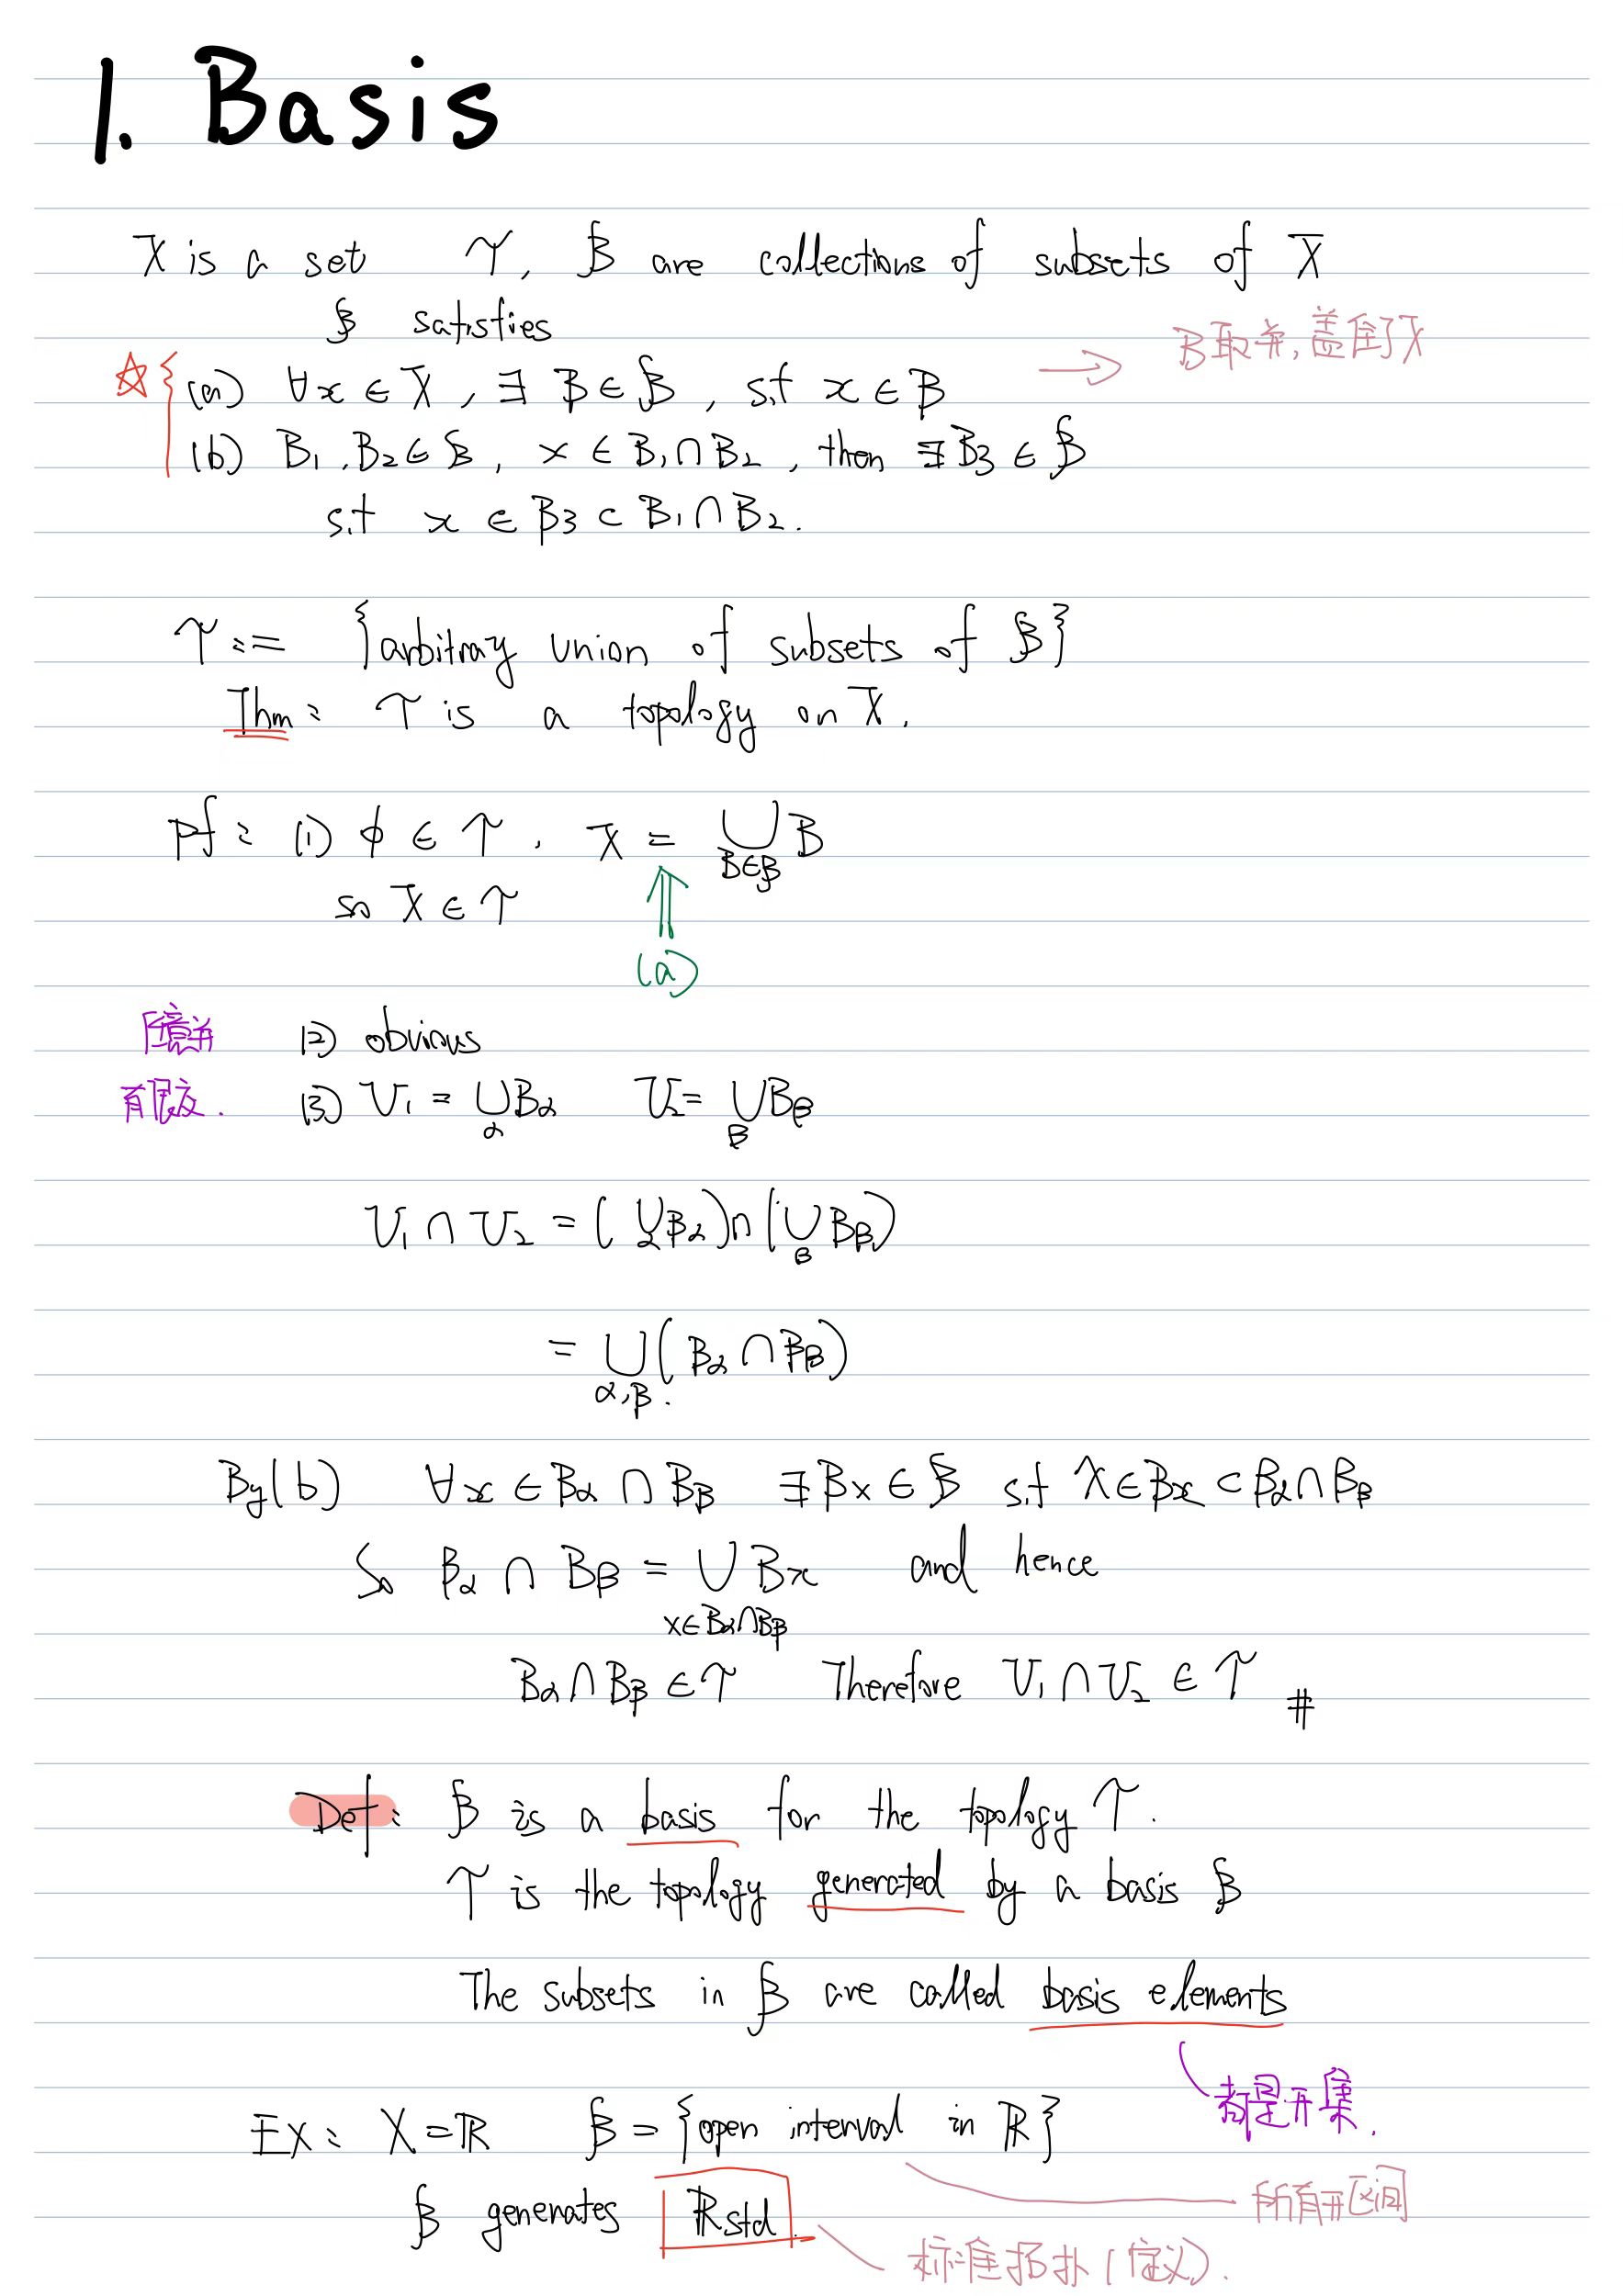 1. Basis
X is a set 𝒯, ℬ are collections of subsets of X
ℬ satisfies
B取并,盖住了X
☆ { (a) ∀x ∈ X, ∃ B ∈ ℬ, s.t x ∈ B →
(b) B₁, B₂ ∈ ℬ, x ∈ B₁ ∩ B₂, then ∃ B₃ ∈ ℬ
s.t x ∈ B₃ ⊂ B₁ ∩ B₂.
𝒯 := {arbitray union of subsets of ℬ}
Thm: 𝒯 is a topology on X.
pf: (1) ϕ ∈ 𝒯. X = ⋃_{B∈ℬ} B
so X ∈ 𝒯 ⇑
(a)
任意并 (2) obvious
有限交. (3) U₁ = ⋃_α B_α U₂ = ⋃_β B_β
U₁ ∩ U₂ = (⋃_α B_α) ∩ (⋃_β B_β)
= ⋃_{α,β.} (B_α ∩ B_β)
By (b) ∀x ∈ B_α ∩ B_β ∃ B_x ∈ ℬ s.t x ∈ B_x ⊂ B_α ∩ B_β
So B_α ∩ B_β = ⋃_{x∈B_α∩B_β} B_x and hence
B_α ∩ B_β ∈ 𝒯 Therefore U₁ ∩ U₂ ∈ 𝒯 #
Def: ℬ is a basis for the topology 𝒯.
𝒯 is the topology generated by a basis ℬ
The subsets in ℬ are called basis elements
都是开集.
EX: X = ℝ ℬ = {open interval in ℝ}
所有开区间
ℬ generates ℝ_std.
标准拓扑(定义).